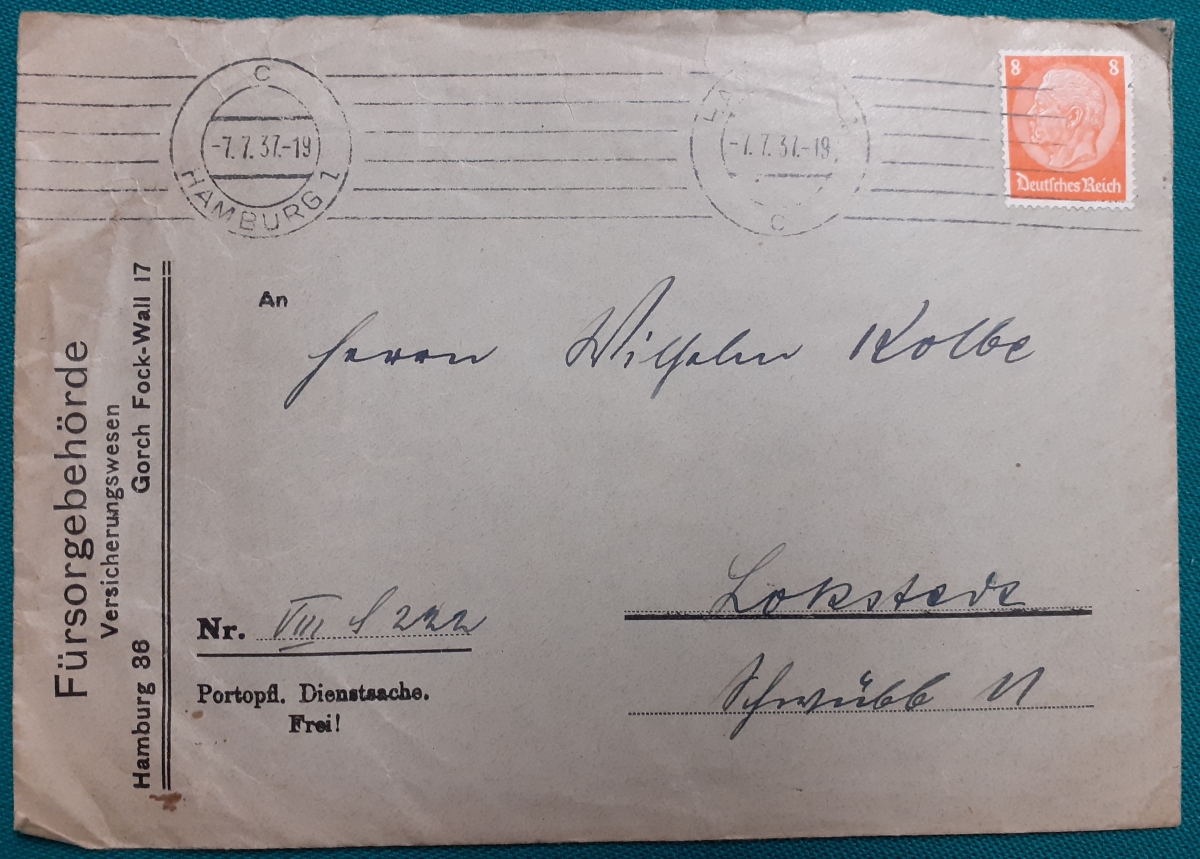 C
-7.7.37.-19
HAMBURG 1
-7.7.37.-19
C
8 8
Deutsches Reich
Fürsorgebehörde
Versicherungswesen
Hamburg 36 Gorch Fock-Wall 17
An
Herrn Wilhelm Kolbe
Lokstedt
Nr. VIII f 222
Schwübb 11
Portopfl. Dienstsache.
Frei!